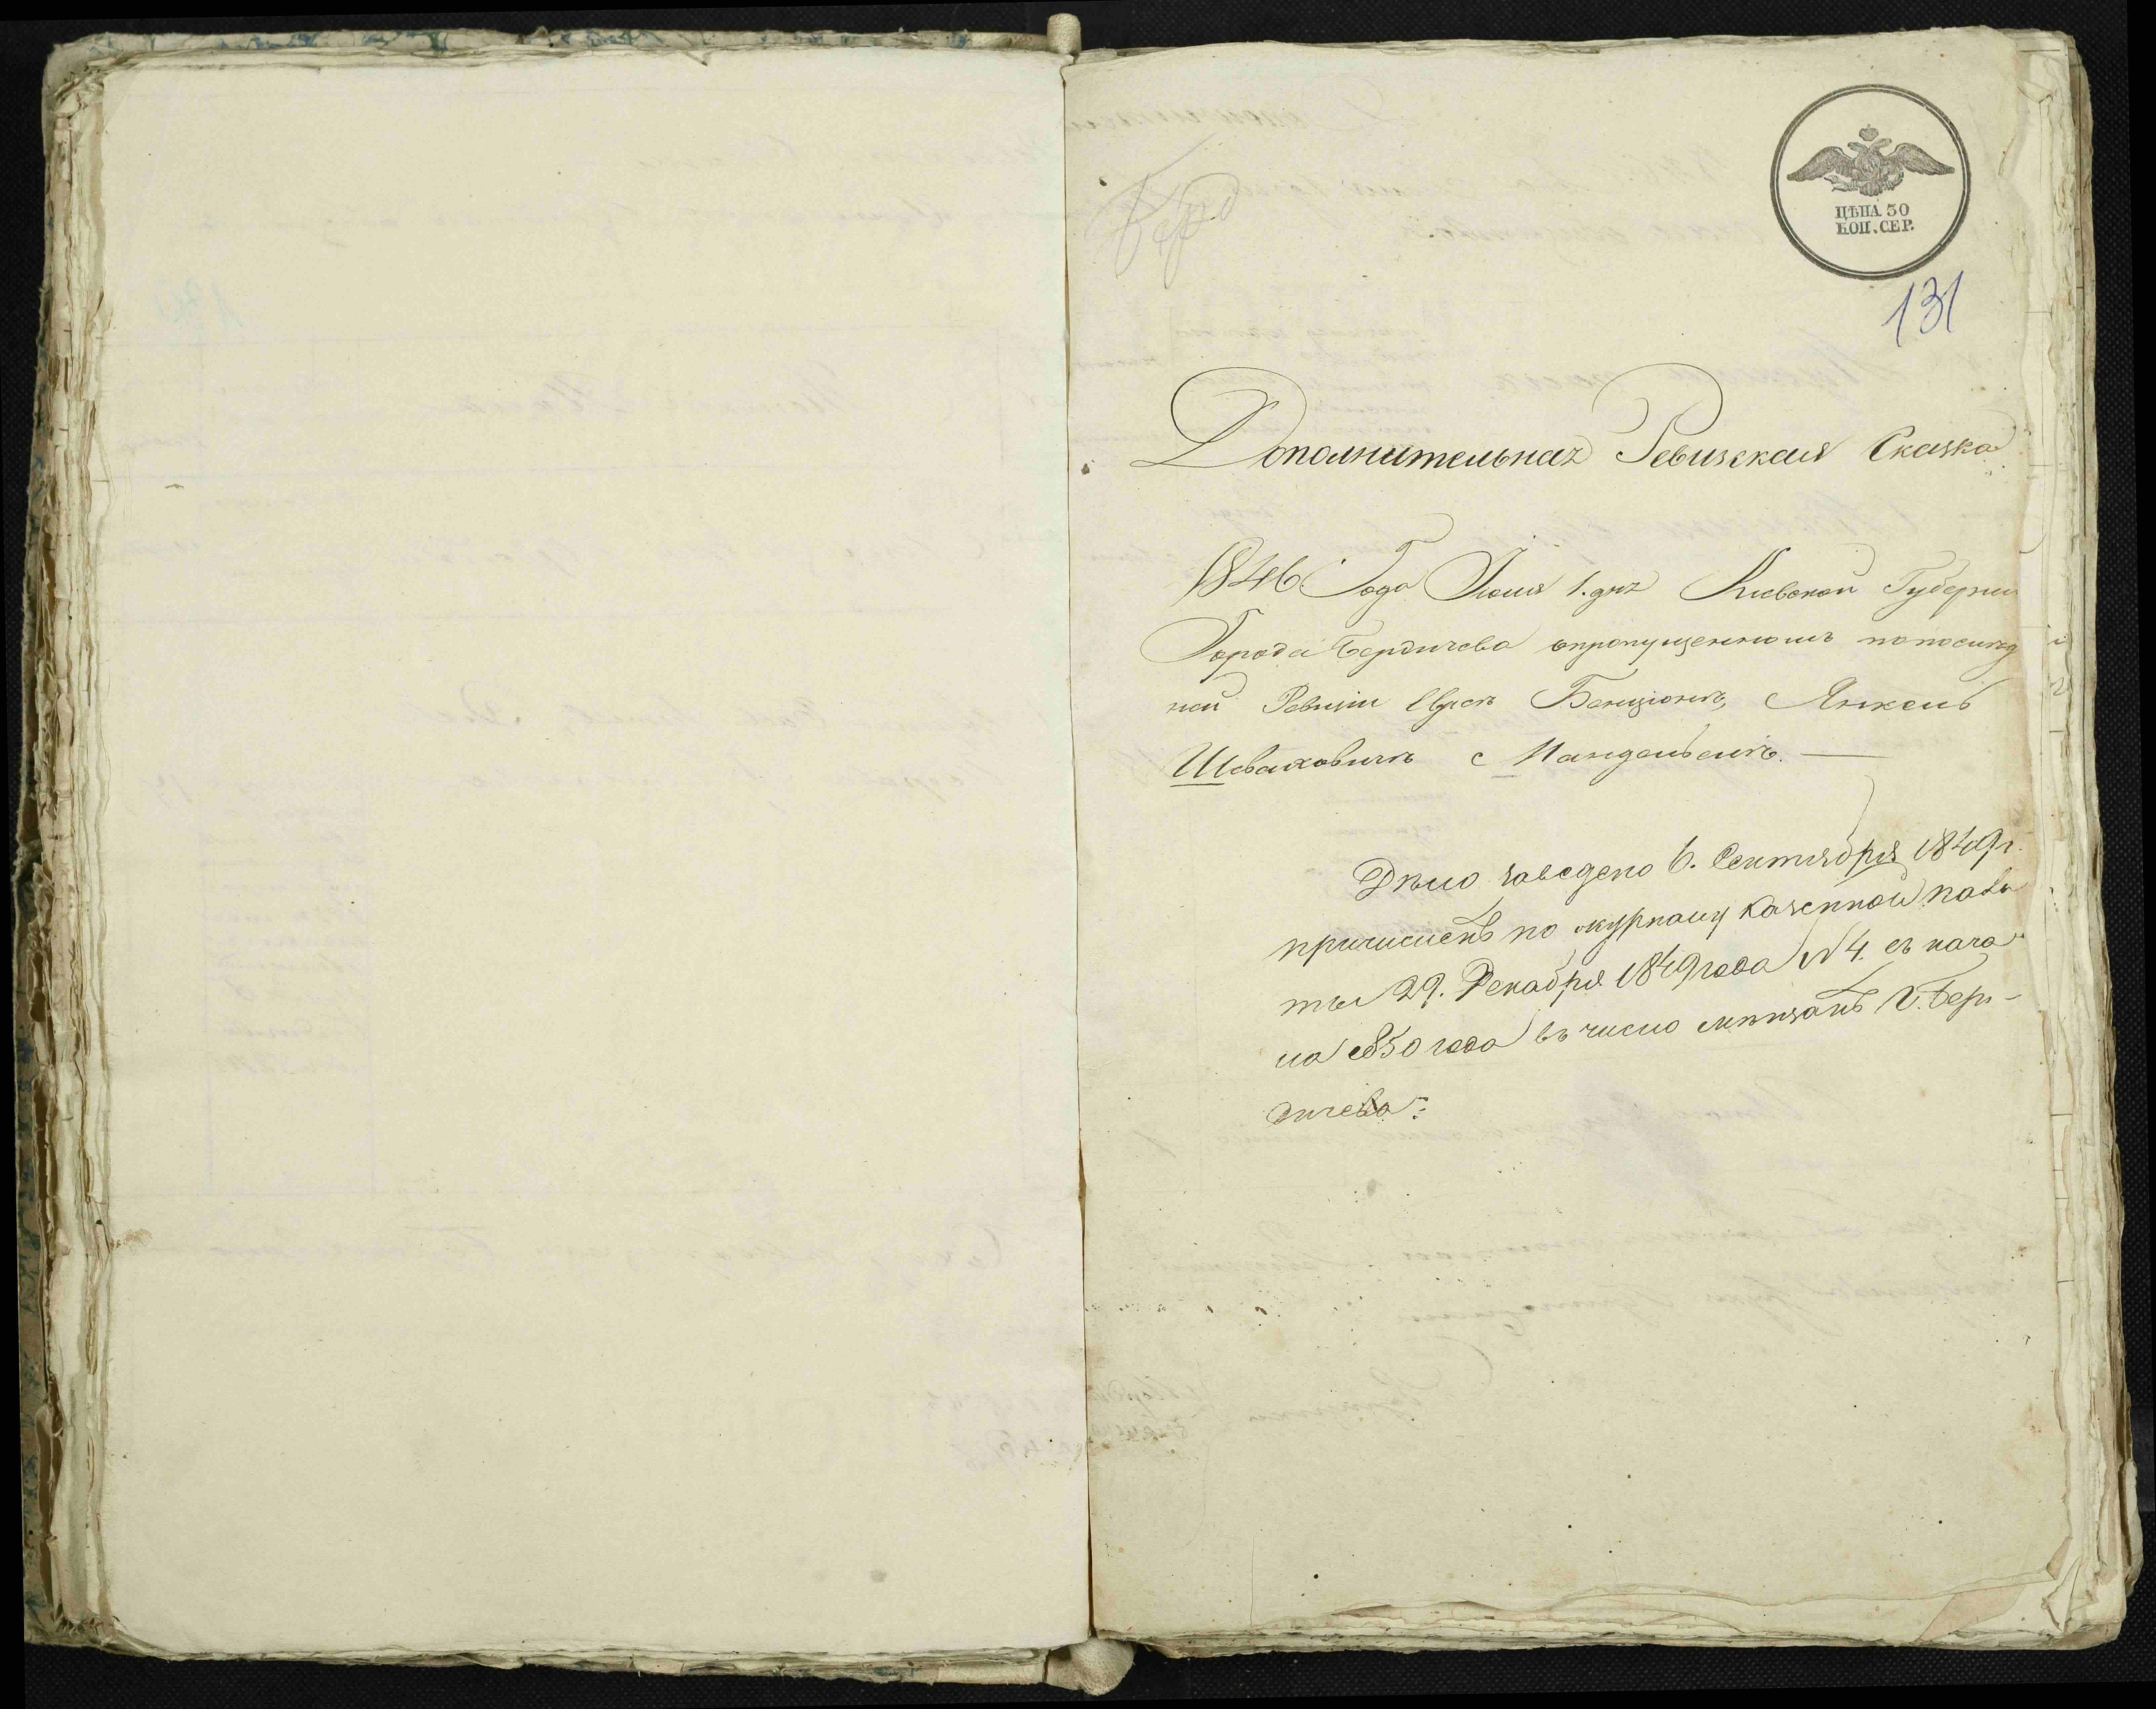 Берд
ЦѢНА 30
КОП. СЕР.
131
Дополнительная Ревизская Сказка
1846 Года Іюля 1. дня Кіевской Губерніи
Города Бердичева опропущенномъ попослѣд
ней Ревизіи Евреѣ Бенціонѣ, Янкелѣ
Шеваховичѣ Мандельейлѣ.
Дѣло заведено 6. Сентября 1849 г.
причисленъ по журналу Казенной пала
ты 29. Декабря 1849 года N 4. съ нача
ла 1850 года въ число мѣщанъ Г. Бер-
дичева: